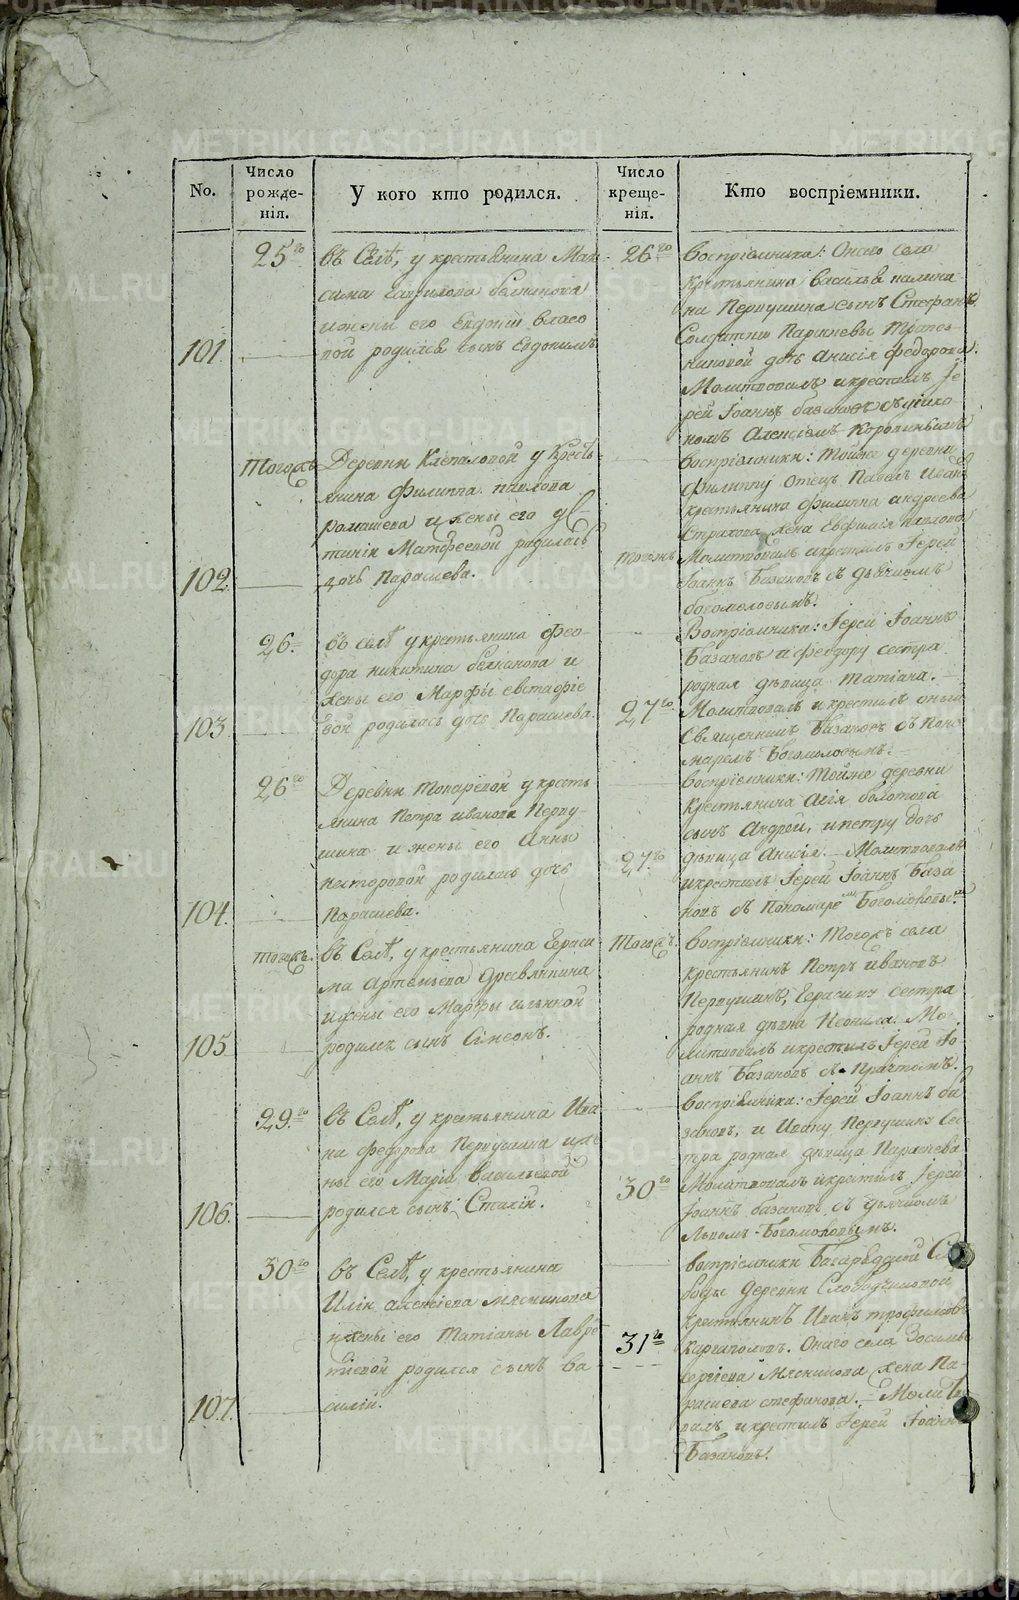 No.
Число рожде-нія.
У кого кто родился.
Число креще-нія.
Кто воспріемники.
101.
25го
въ Селѣ, у крестьянина Мак
сима Гаврилова
и жены его Евдокіи Власо
вой родился сынъ Евдокимъ
26го
Воспріемники: Онаго села
крестьянина Василья
на Первушина сынъ Стефанъ
Солдатки Парасковьи
дочь Анисія Федорова.
Молитвовалъ и крестилъ Іе
рей Іоаннъ Базановъ съ дьяко
номъ Алексіемъ Коровинымъ
102
Тогожъ
Деревни Клепаловой у кресть
янина Филиппа Павлова
Ромашева и жены его У
стиніи Матфеевой родилась
дочь Парасева.
Тогожъ
Воспріемники: Тойже деревни
Филиппу отецъ Павелъ Иванъ
крестьянина Филиппа Андреева
Страхова жена Павлова
Молитвовалъ и крестилъ Іерей
Іоаннъ Базановъ съ дьячкомъ
Богомоловымъ.
103
26.
въ селѣ у крестьянина Фео
дора Никитина и
жены его Марфы Евстафіе
вой родилась дочь Парасева.
27го
Воспріемники: Іерей Іоаннъ
Базановъ и Феодору сестра
родная дѣвица Татіана.
Молитвовалъ и крестилъ оный
Священникъ Базановъ съ Поно
маремъ Богомоловымъ.
104.
26го
Деревни Токаревой у кресть
янина Петра Иванова Перву-
шина и жены его Анны
Несторовой родилась дочь
Парасева.
27го
Воспріемники: Тойже деревни
Крестьянина Болотова
сынъ Андрей, и Петру дочь
дѣвица Анисія. Молитвовалъ
и крестилъ Іерей Іоаннъ База
новъ съ Пономаремъ Богомоловымъ
105
Тогожъ.
въ Селѣ, у крестьянина Гераси
ма Артемьева Дресвянкина
и жены его Марфы Ильиной
родился сынъ Симеонъ.
Тогожъ.
Воспріемники: Тогожъ села
крестьянинъ Петръ Ивановъ
Первушинъ, Герасиму сестра
родная дѣвка Неонила. Мо-
литвовалъ и крестилъ Іерей Іо
аннъ Базановъ съ Причтомъ.
106.
29го
въ Селѣ, у крестьянина Ива
на Федорова Первушина и же
ны его Маріи Васильевой
родился сынъ
30го
Воспріемники: Іерей Іоаннъ Ба
зановъ, и Ивану Первушину Сес
тра родная дѣвица Парасева
Молитвовалъ и крестилъ Іерей
Іоаннъ Базановъ съ дьячкомъ
Львомъ Богомоловымъ.
107
30го
въ Селѣ, у крестьянина
Иліи Алексіева Мясникова
и жены его Татіаны Лавре
тіевой родился сынъ Ва
силій.
31го
Воспріемники Багарядской Сло
боды деревни
крестьянинъ Иванъ Трофимовъ
Каргаполовъ. Онаго села Зосимы
Сергіева Мясникова жена Па
расева Стефанова. Молитво
валъ и крестилъ Іерей Іоаннъ
Базановъ.
METRIKI.GASO-URAL.RU